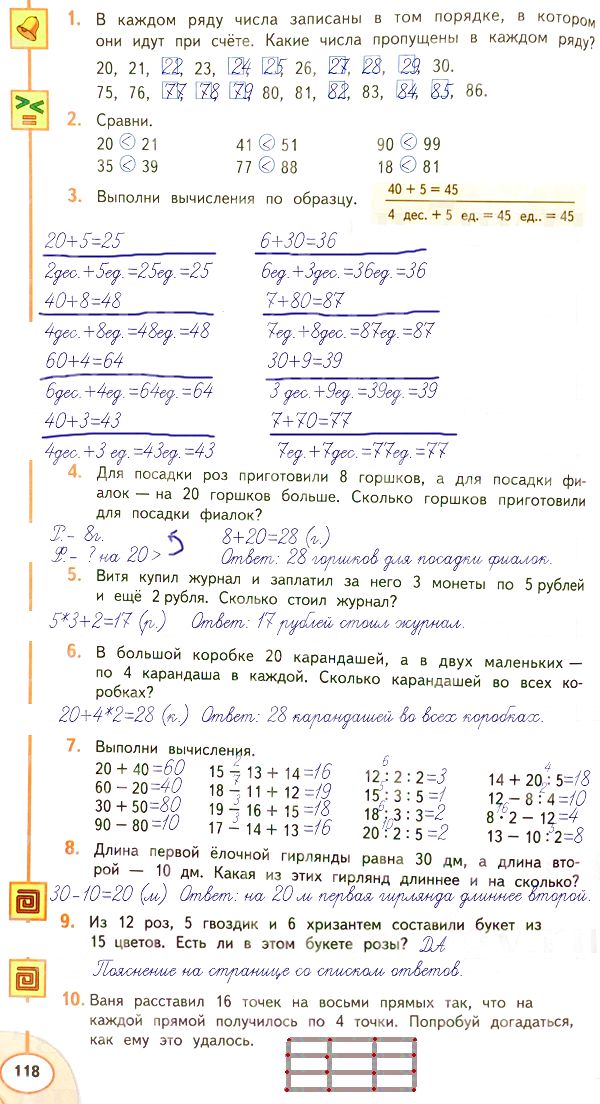 1. В каждом ряду числа записаны в том порядке, в котором
они идут при счёте. Какие числа пропущены в каждом ряду?
20, 21, 22, 23, 24, 25, 26, 27, 28, 29, 30.
75, 76, 77, 78, 79, 80, 81, 82, 83, 84, 85, 86.
2. Сравни.
20 < 21 41 < 51 90 < 99
35 < 39 77 < 88 18 < 81
3. Выполни вычисления по образцу. 40 + 5 = 45
4 дес. + 5 ед. = 45 ед.. = 45
20+5=25 6+30=36
2дес.+5ед.=25ед.=25 6ед.+3дес.=36ед.=36
40+8=48 7+80=87
4дес.+8ед.=48ед.=48 7ед.+8дес.=87ед.=87
60+4=64 30+9=39
6дес.+4ед.=64ед.=64 3 дес.+9ед.=39ед.=39
40+3=43 7+70=77
4дес.+3 ед.=43ед.=43 7ед.+7дес.=77ед.=77
4. Для посадки роз приготовили 8 горшков, а для посадки фи-
алок — на 20 горшков больше. Сколько горшков приготовили
для посадки фиалок?
Р.- 8г. 8+20=28 (г.)
Ф.- ? на 20 > Ответ: 28 горшков для посадки фиалок.
5. Витя купил журнал и заплатил за него 3 монеты по 5 рублей
и ещё 2 рубля. Сколько стоил журнал?
5*3+2=17 (р.) Ответ: 17 рублей стоил журнал.
6. В большой коробке 20 карандашей, а в двух маленьких —
по 4 карандаша в каждой. Сколько карандашей во всех ко-
робках?
20+4*2=28 (к.) Ответ: 28 карандашей во всех коробках.
7. Выполни вычисления.
20 + 40=60 15 − 13 + 14=16 12 : 2 : 2=3 14 + 20 : 5=18
60 − 20=40 18 − 11 + 12=19 15 : 3 : 5=1 12 − 8 : 4=10
30 + 50=80 19 − 16 + 15=18 18 : 3 : 3=2 8 · 2 − 12=4
90 − 80=10 17 − 14 + 13=16 20 : 2 : 5=2 13 − 10 : 2=8
8. Длина первой ёлочной гирлянды равна 30 дм, а длина вто-
рой — 10 дм. Какая из этих гирлянд длиннее и на сколько?
30-10=20 (м) Ответ: на 20 м первая гирлянда длиннее второй.
9. Из 12 роз, 5 гвоздик и 6 хризантем составили букет из
15 цветов. Есть ли в этом букете розы? ДА
Пояснение на странице со списком ответов.
10. Ваня расставил 16 точек на восьми прямых так, что на
каждой прямой получилось по 4 точки. Попробуй догадаться,
как ему это удалось.
118